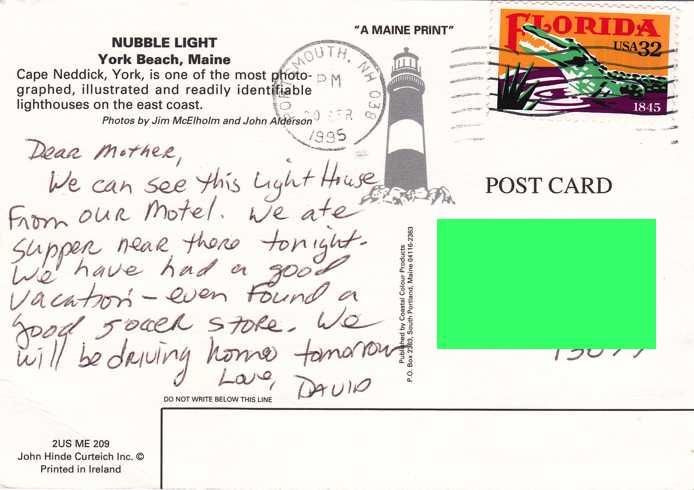 NUBBLE LIGHT
York Beach, Maine
Cape Neddick, York, is one of the most photo-
graphed, illustrated and readily identifiable
lighthouses on the east coast.
Photos by Jim McElholm and John Alderson
"A MAINE PRINT"
PORTSMOUTH, NH 038
PM
20 APR
1995
FLORIDA
USA 32
1845
Dear Mother,
We can see this Light House
From our Motel. We ate
supper near there tonight.
We have had a good
vacation - even found a
good soccer store. We
will be driving home tomorrow
Love, DAVID
POST CARD
Published by Coastal Colour Products
P.O. Box 2383, South Portland, Maine 04116-2383
DO NOT WRITE BELOW THIS LINE
2US ME 209
John Hinde Curteich Inc. ©
Printed in Ireland